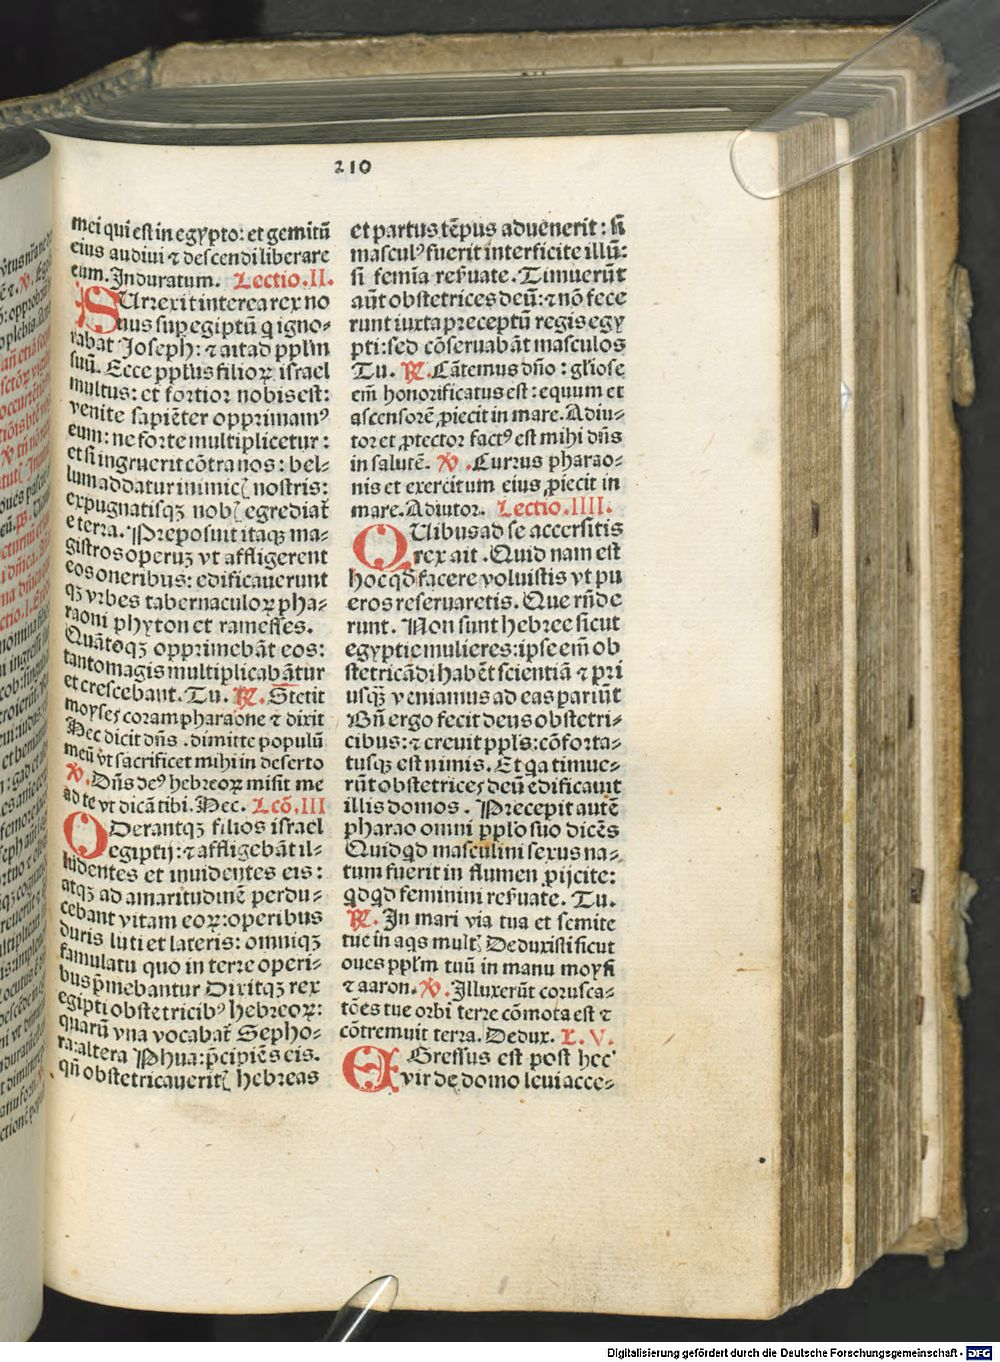 210
mei qui est in egypto: et gemitū
eius audiui ⁊ descendi liberare
eum. Induratum. Lectio.II.
SUrrexit interea rex no
uus sup egiptū q igno⸗
rabat Joseph: ⁊ ait ad pplm
suū. Ecce pplus filioꝝ israel
multus: et fortior nobis est:
venite sapiēter opprimamꝰ
eum: ne forte multiplicetur:
et si ingruerit cōtra nos: bel⸗
lum addatur inimicꝭ nostris:
expugnatisqꝫ nobꝭ egrediat̄
e terra. Preposuit itaqꝫ ma⸗
gistros operuꝫ vt affligerent
eos oneribus: edificauerunt
qꝫ vrbes tabernaculoꝝ pha⸗
raoni phyton et ramesses.
Quātoqꝫ opprimebāt eos:
tanto magis multiplicabātur
et crescebant. Tu. ℟. Stetit
moyses coram pharaone ⁊ dixit
Hec dicit dn̄s .dimitte populū
meū vt sacrificet mihi in deserto
℣. Dn̄s deꝰ hebreoꝝ misit me
ad te vt dicā tibi. Hec. Lcō.III
ODerantqꝫ filios israel
egiptij: ⁊ affligebāt il⸗
ludentes et inuidentes eis:
atqꝫ ad amaritudinē perdu⸗
cebant vitam eoꝝ: operibus
duris luti et lateris: omniqꝫ
famulatu quo in terre operi⸗
bus p̄mebantur Dixitqꝫ rex
egipti obstetricibꝰ hebreoꝝ:
quarū vna vocabat̄ Sepho⸗
ra: altera Phua: p̄cipiēs eis.
qn̄ obstetricaueritꝭ hebreas
et partus tēpus aduenerit: si
masculꝰ fuerit interficite illū:
si femīa reẜuate. Timuerūt
aūt obstetrices deū: ⁊ nō fece
runt iuxta preceptū regis egy
pti: sed cōseruabāt masculos
Tu. ℟. Cātemus dn̄o: gl̄iose
em̄ honorificatus est: equum et
ascensorē ꝓiecit in mare. Adiu⸗
tor et ꝓtector factꝰ est mihi dn̄s
in salutē. ℣. Currus pharao⸗
nis et exercitum eius ꝓiecit in
mare. Adiutor. Lectio.IIII.
QUibus ad se accersitis
rex ait. Quid nam est
hoc qd̄ facere voluistis vt pu
eros reseruaretis. Que rn̄de
runt. Non sunt hebree sicut
egyptie mulieres: ipse em̄ ob
stetricādi habēt scientiā ⁊ pri
usqꝫ veniamus ad eas pariūt
Bn̄ ergo fecit deus obstetri⸗
cibus: ⁊ creuit ppl̄s: cōforta⸗
tusqꝫ est nimis. Et qa timue⸗
rūt obstetrices deū edificauit
illis domos. Precepit autē
pharao omni ppl̄o suo dicēs
Quid qd masculini sexus na⸗
tum fuerit in flumen ꝓijcite:
qd qd feminini reẜuate. Tu.
℟. In mari via tua et semite
tue in aqs multꝭ Deduxisti sicut
oues pplm tuū in manu moysi
⁊ aaron. ℣. Illuxerūt corusca⸗
tōes tue orbi terre cōmota est ⁊
cōtremuit terra. Dedux. L.V.
EGressus est post hec
vir de domo leui acce⸗
Digitalisierung gefördert durch die Deutsche Forschungsgemeinschaft - DFG